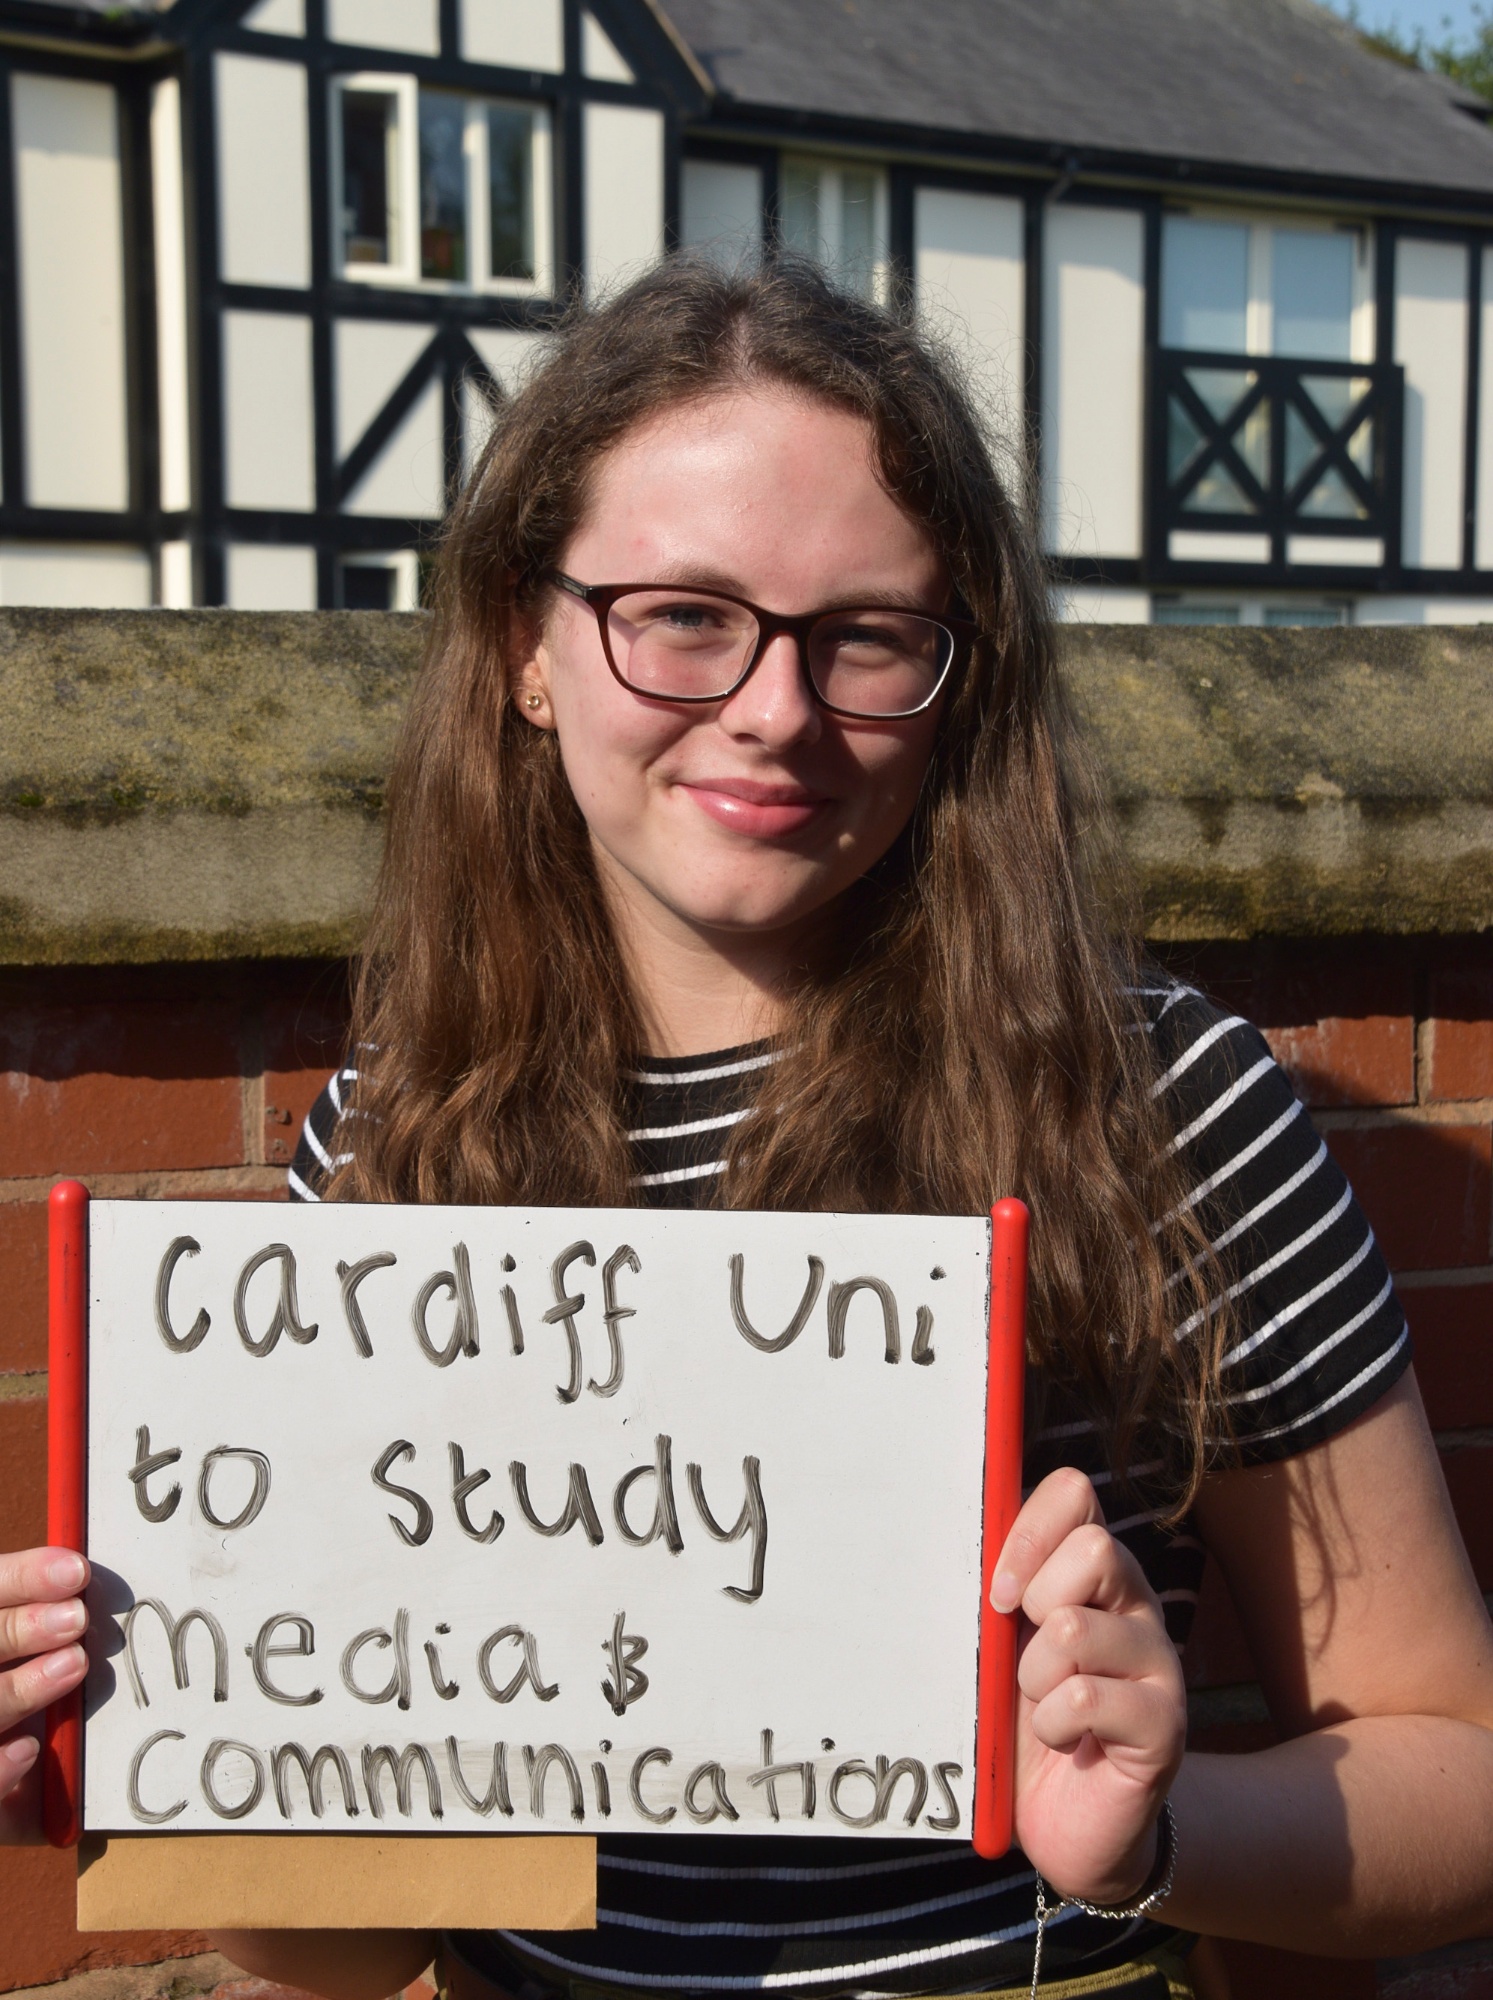 Cardiff Uni
to study
Media &
Communications